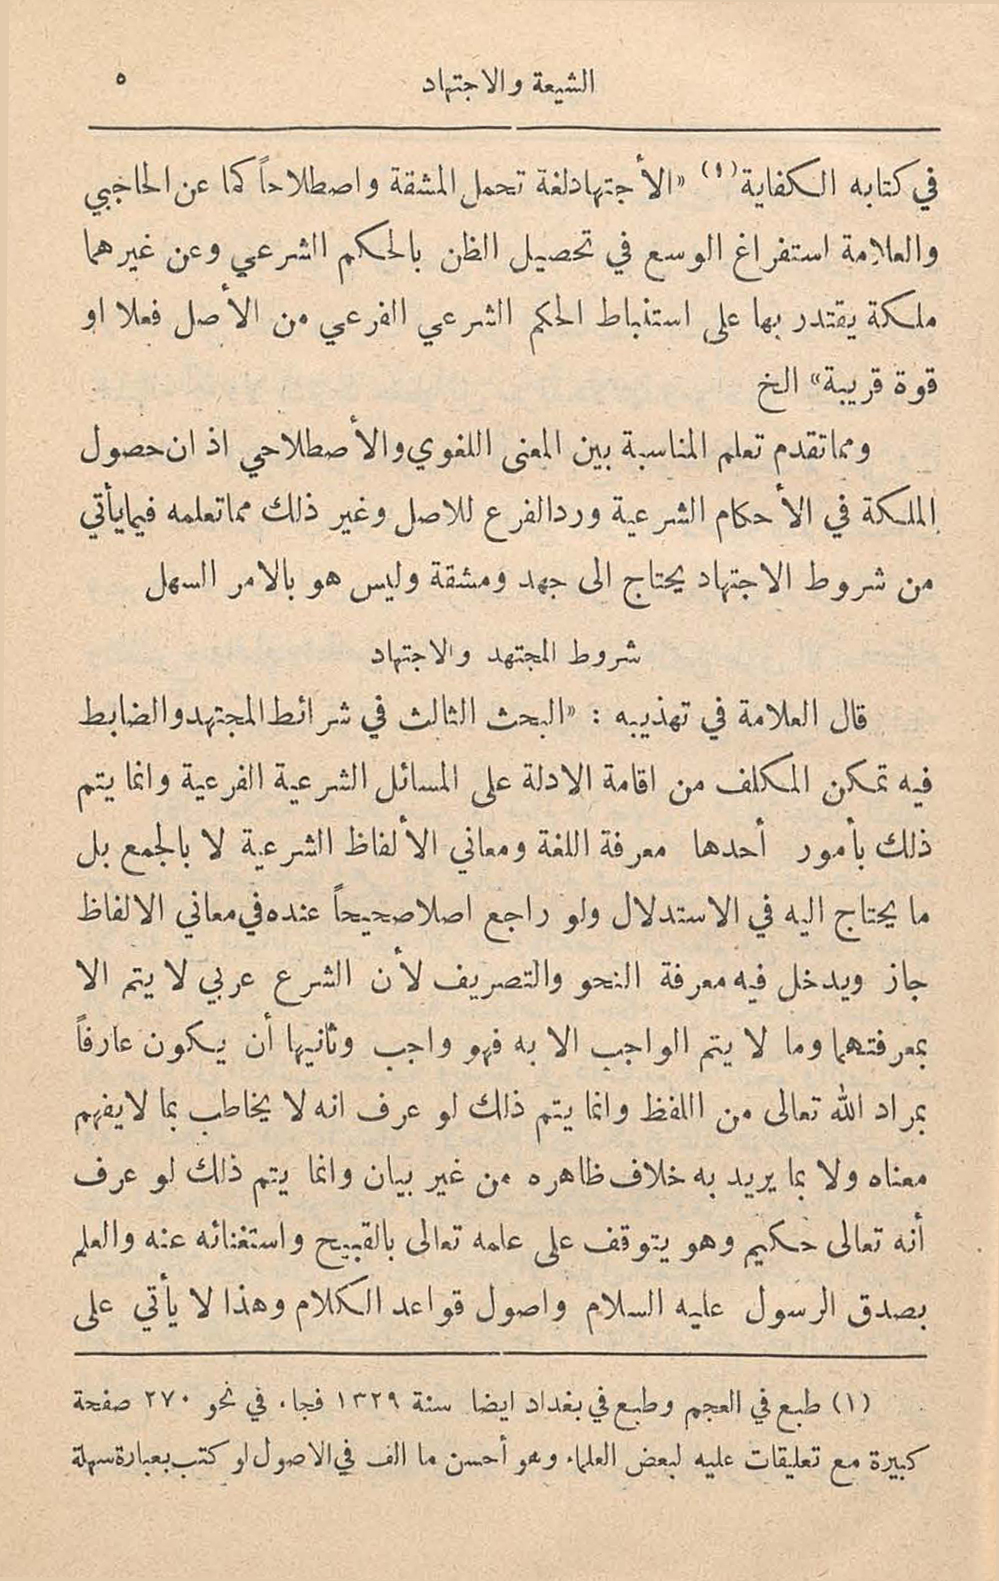 الشيعة والاجتهاد ٥
في كتابه الكفاية (١) «الأجتهاد لغة تحمل المشقة واصطلاحاً كما عن الحاجبي
والعلامة استفراغ الوسع في تحصيل الظن بالحكم الشرعي وعن غيرهما
ملكة يقتدر بها على استنباط الحكم الشرعي الفرعي من الأصل فعلا او
قوة قريبة» الخ
ومما تقدم تعلم المناسبة بين المعنى اللغوي والأصطلاحي اذ ان حصول
الملكة في الأحكام الشرعية ورد الفرع للاصل وغير ذلك مما تعلمه فيما يأتي
من شروط الاجتهاد يحتاج الى جهد ومشقة وليس هو بالامر السهل
شروط المجتهد والاجتهاد
قال العلامة في تهذيبه : «البحث الثالث في شرائط المجتهد والضابط
فيه تمكن المكلف من اقامة الادلة على المسائل الشرعية الفرعية وانما يتم
ذلك بأمور أحدها معرفة اللغة ومعاني الألفاظ الشرعية لا بالجمع بل
ما يحتاج اليه في الاستدلال ولو راجع اصلا صحيحاً عنده في معاني الالفاظ
جاز ويدخل فيه معرفة النحو والتصريف لأن الشرع عربي لا يتم الا
بمعرفتهما وما لا يتم الواجب الا به فهو واجب وثانيها أن يكون عارفاً
بمراد الله تعالى من اللفظ وانما يتم ذلك لو عرف انه لا يخاطب بما لا يفهم
معناه ولا بما يريد به خلاف ظاهره من غير بيان وانما يتم ذلك لو عرف
أنه تعالى حكيم وهو يتوقف على علمه تعالى بالقبيح واستغنائه عنه والعلم
بصدق الرسول عليه السلام واصول قواعد الكلام وهذا لا يأتي على
(١) طبع في العجم وطبع في بغداد ايضا سنة ١٣٢٩ فجاء في نحو ٢٧٠ صفحة
كبيرة مع تعليقات عليه لبعض العلماء وهو أحسن ما الف في الاصول لو كتب بعبارة سهلة